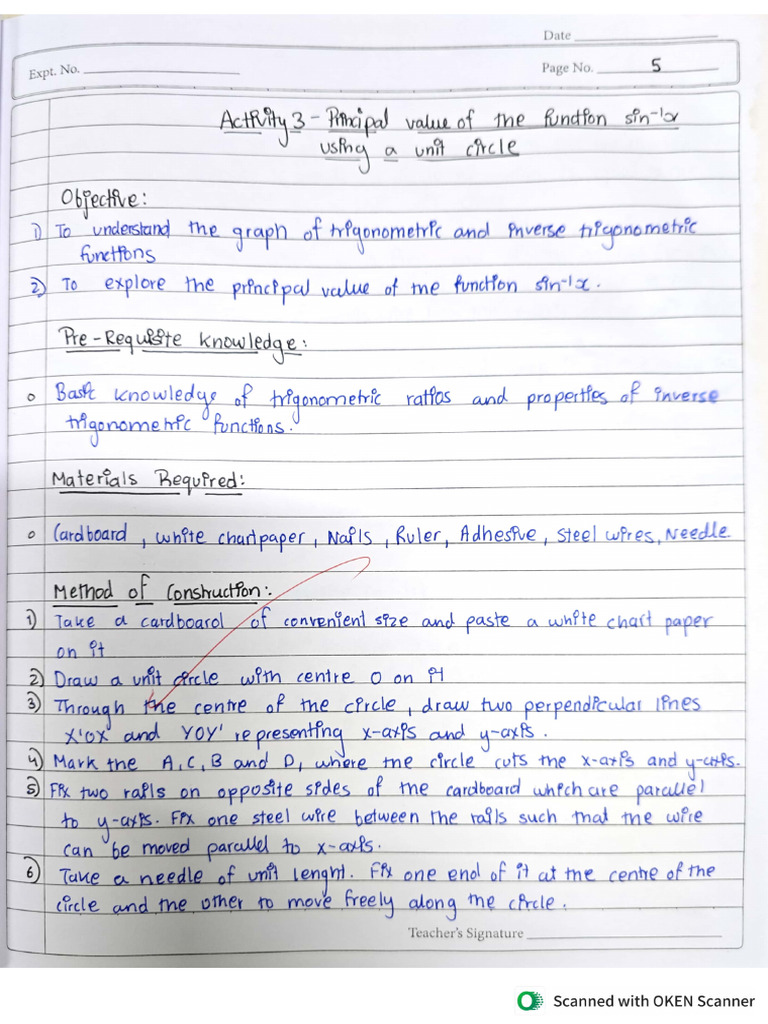 Date
Expt. No.
Page No. 5
Activity 3 - Principal value of the function sin⁻¹x
using a unit circle
Objective:
1) To understand the graph of trigonometric and inverse trigonometric
functions
2) To explore the principal value of the function sin⁻¹x.
Pre-Requisite Knowledge:
o Basic knowledge of trigonometric ratios and properties of inverse
trigonometric functions.
Materials Required:
o Cardboard, white chartpaper, Nails, Ruler, Adhesive, Steel wires, Needle.
Method of Construction:
1) Take a cardboard of convenient size and paste a white chart paper
on it
2) Draw a unit circle with centre O on it
3) Through the centre of the circle, draw two perpendicular lines
X'OX and YOY' representing x-axis and y-axis.
4) Mark the A, C, B and D, where the circle cuts the x-axis and y-axis.
5) Fix two rails on opposite sides of the cardboard which are parallel
to y-axis. Fix one steel wire between the rails such that the wire
can be moved parallel to x-axis.
6) Take a needle of unit lenght. Fix one end of it at the centre of the
circle and the other to move freely along the circle.
Teacher's Signature
Scanned with OKEN Scanner